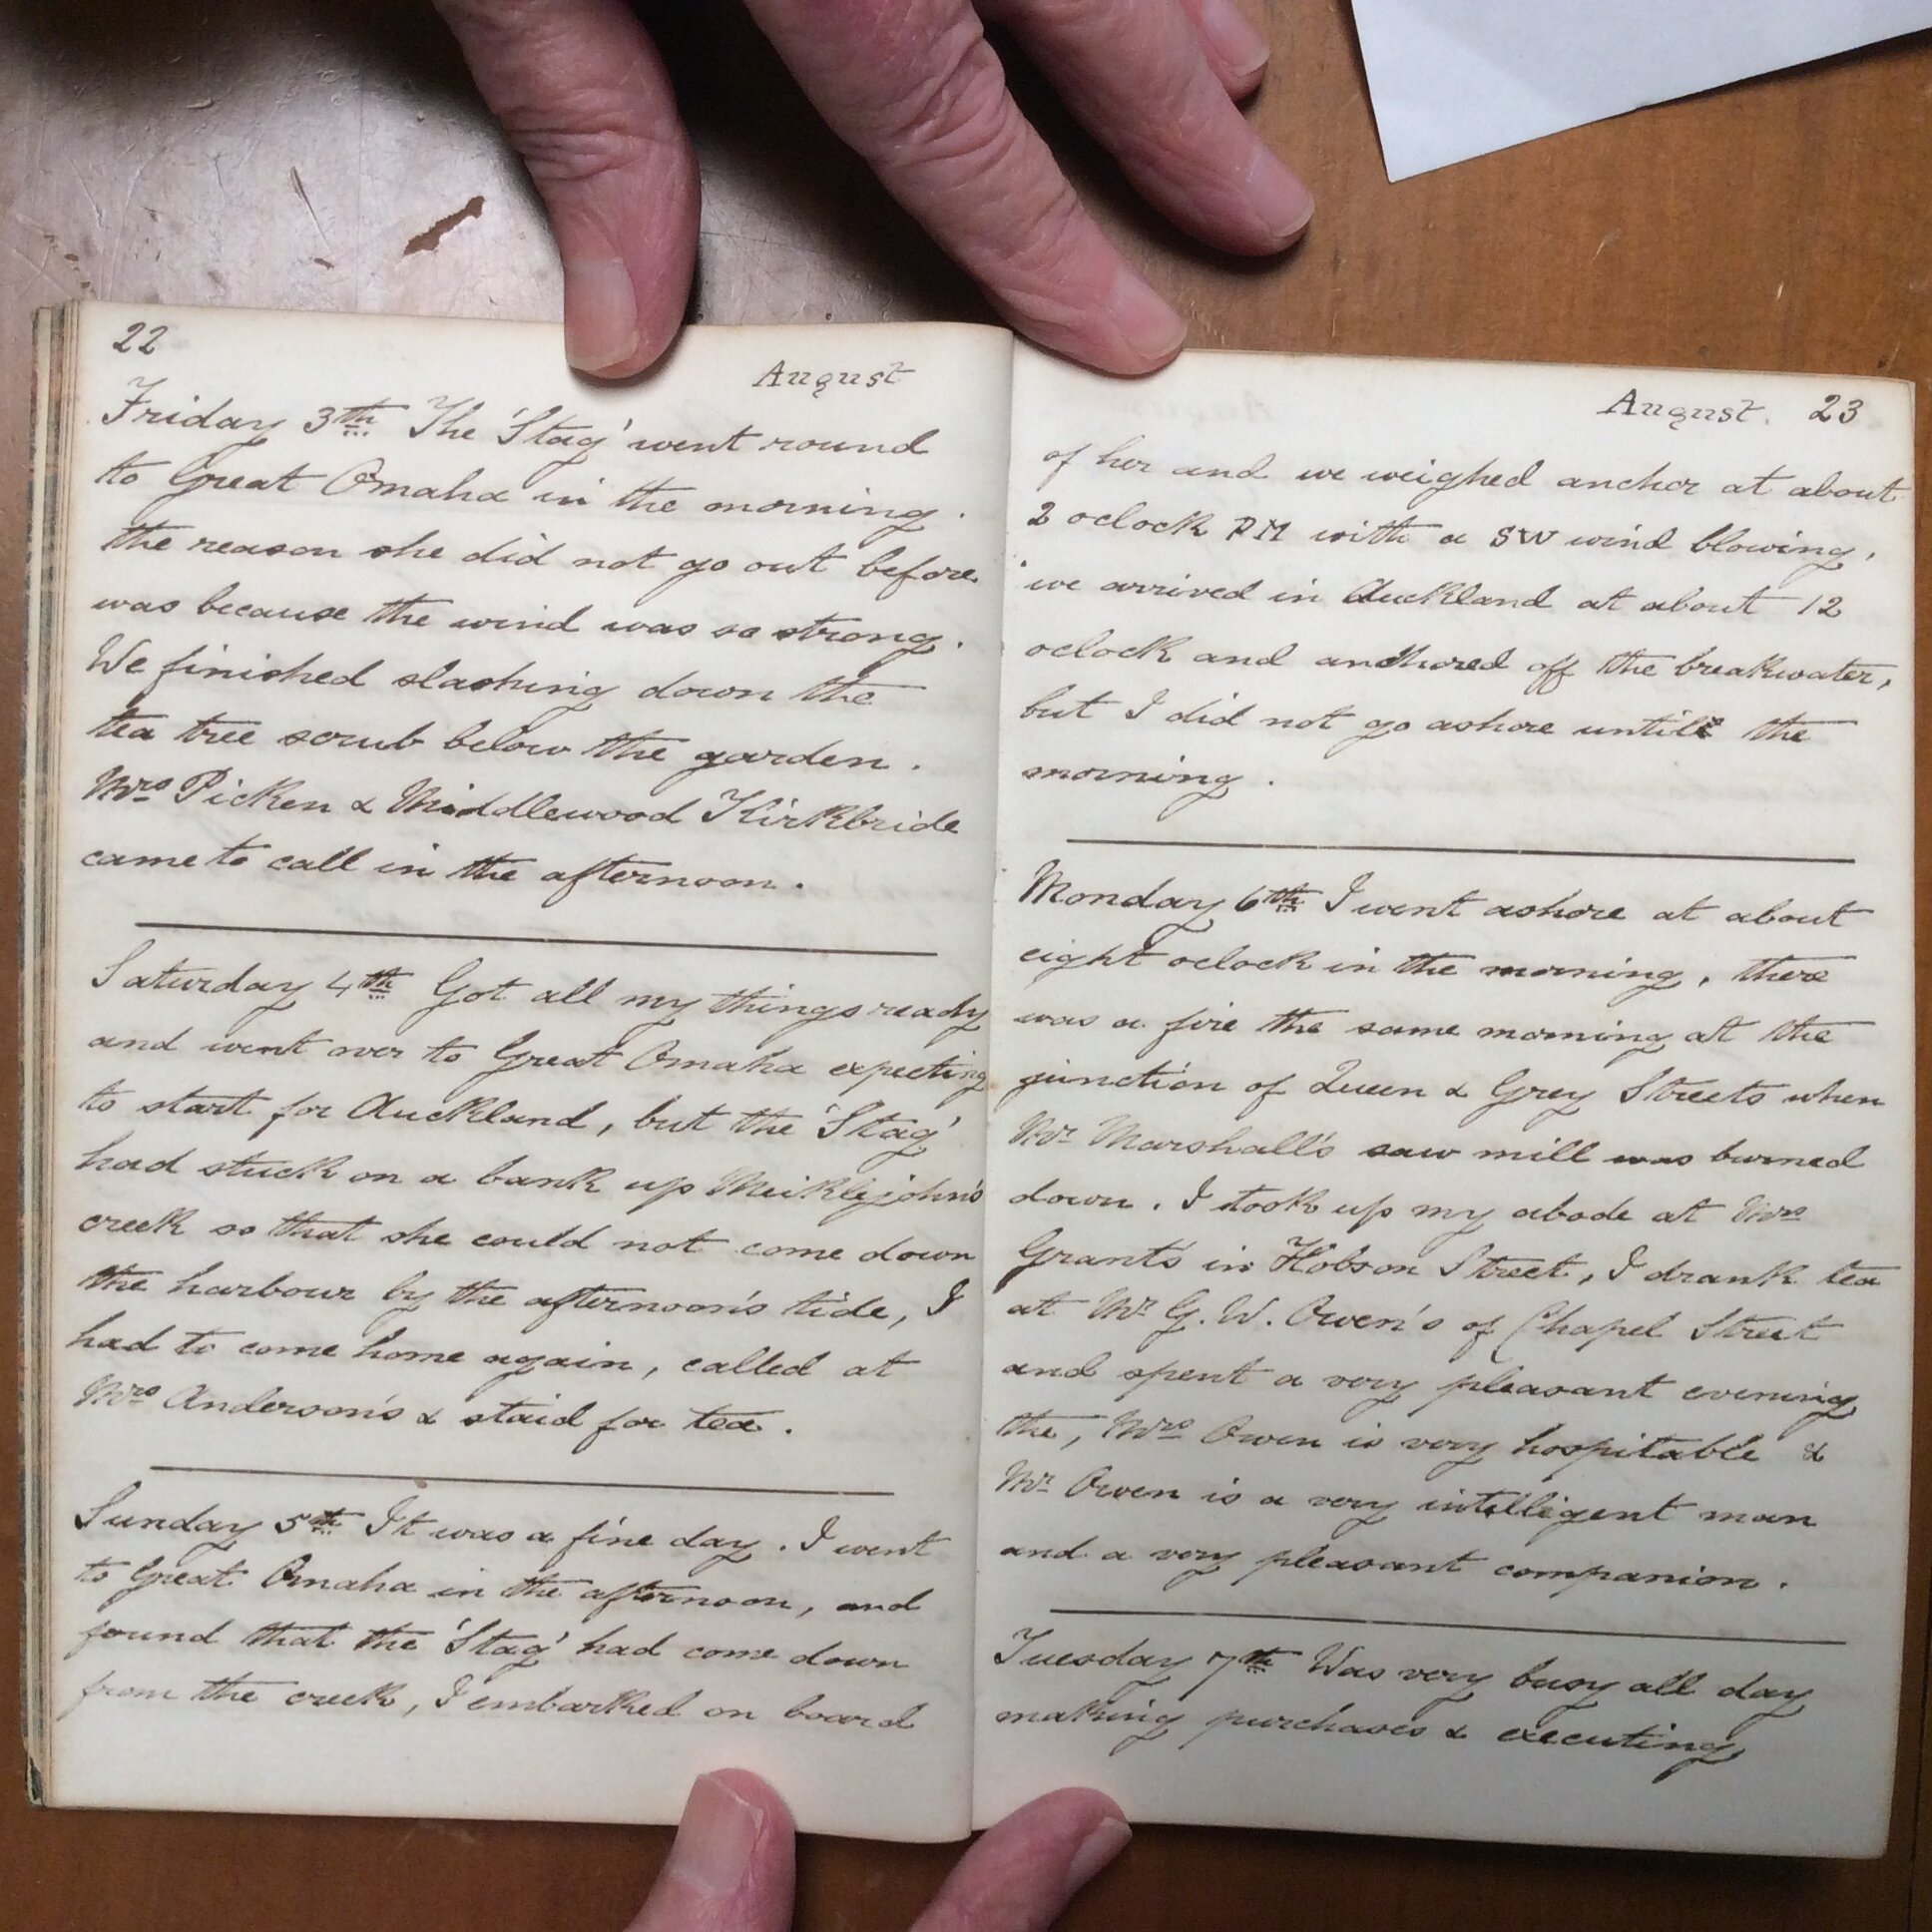 22
August
Friday 3th The 'Stag' went round
to Great Omaha in the morning.
the reason she did not go out before
was because the wind was so strong.
We finished slashing down the
tea tree scrub below the garden.
Mrs Picken & Middlewood Kirkbride
came to call in the afternoon.
Saturday 4th Got all my things ready
and went over to Great Omaha expecting
to start for Auckland, but the 'Stag'
had stuck on a bank up Meiklejohn's
creek so that she could not come down
the harbour by the afternoon's tide, I
had to come home again, called at
Mrs Anderson's & staid for tea.
Sunday 5th It was a fine day. I went
to Great Omaha in the afternoon, and
found that the 'Stag' had come down
from the creek, I embarked on board
August. 23
of her and we weighed anchor at about
2 oclock PM with a SW wind blowing,
we arrived in Auckland at about 12
oclock and anchored off the breakwater,
but I did not go ashore untill the
morning.
Monday 6th I went ashore at about
eight oclock in the morning, there
was a fire the same morning at the
junction of Queen & Grey Streets when
Mr Marshall's saw mill was burned
down. I took up my abode at Mrs
Grant's in Hobson Street, I drank tea
at Mr G. W. Owen's of Chapel Street
and spent a very pleasant evening
the, Mrs Owen is very hospitable &
Mr Owen is a very intelligent man
and a very pleasant companion.
Tuesday 7th Was very busy all day
making purchases & executing